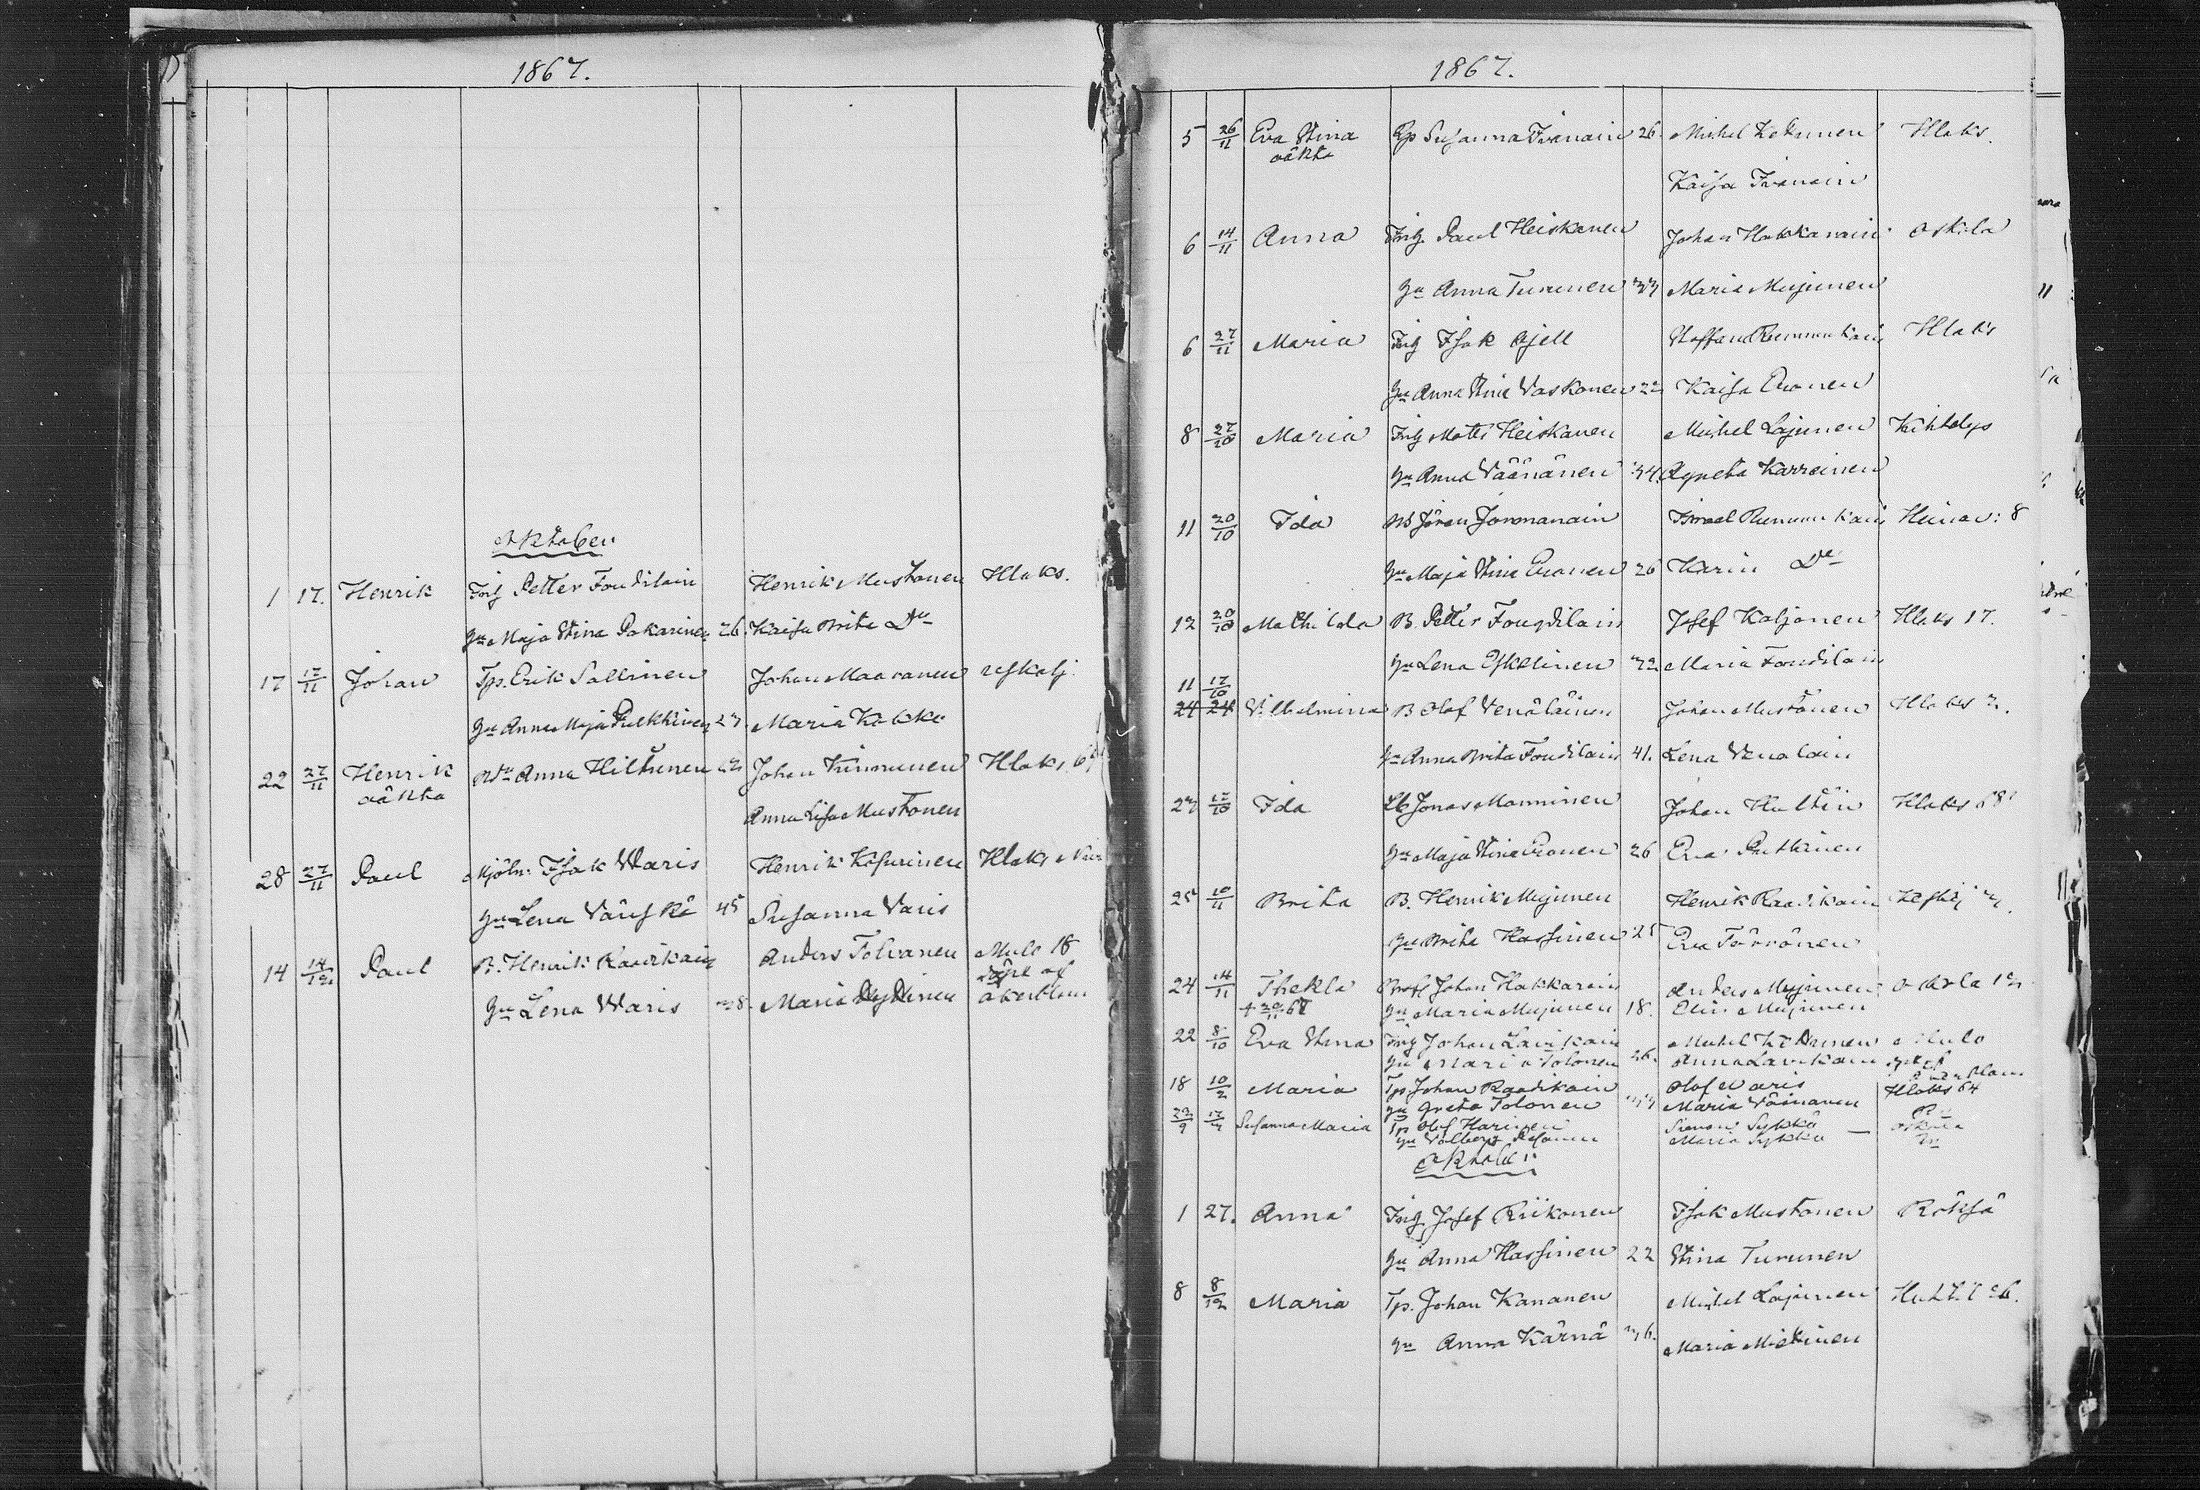 1867.
Oktober
1 17. Henrik Inhg Petter Foudilain Henrik Mustonen Hlaks.
Hu Maja Stina Pakarinen 26. Kaisa Brita Do
17 17/11 Johan Tps. Erik Sallinen Johan Maaranen
Hu Anna Maja Pulkkinen Maria Kokko
22 27/11 Henrik Anna Hiltunen Johan Kinnunen Hlaks.
oäkta Anna Lisa Mustonen
28 27/11 Paul Mjöln: Isak Waris Henrik Kosuninen Hlaks
Hu Lena Vänskä 45 Susanna Varis
14 14/12 Paul B. Henrik Raatikain Anders Tolvanen Mulo 18
Hu Lena Waris Maria döpt af
Åkerblom
1867.
5 26/11 Eva Stina Susanna Ivanain 26. Michel Hlaks.
oäkta
Kaisa Ivanain
6 14/11 Anna Inhg Paul Heiskanen Johan Hakkarain Oskola
Hu Anna Turunen 33 Maria Mujunen
6 27/11 Maria Inhg Isak Ajell Staffan Hlaks
Hu Anna Stina Vaskonen 22 Kaisa Eronen
8 27/10 Maria Inhg Matts Heiskanen Michel Lajunen Kihtelys
Hu Anna Väänänen 34. Agneta Karreinen
11 20/10 Ida Jöran Jormanain Israel Heinav: 8
Hu Maja Stina Eronen 26 Karin Do
12 20/10 Mathilda B. Petter Fougdilain Josef Koljonen Hlaks 17.
Hu Lena Eskelinen 32 Maria Foudilain
11 17/10
24 24 Vilhelmina B Olof Venäläinen Johan Mustonen Hlaks 3.
Hu Anna Brita Foudilain 41. Lena Venalain
23 17/10 Ida Jonas Manninen Johan Hultin Hlaks 68
Hu Maja Stina Eronen 26 Eva Puttkinen
25 10/11 Brita B. Henrik Mujunen Henrik Raatikain
Hu Brita Hassinen 25 Eva Törrönen
24 14/11 Thekla Johan Hakkarain Anders Mujunen Oskola
Hu Maria Mujunen 18. Elin Mujunen
22 8/10 Eva Stina Inhg Johan Lavikain Michel Mulo
Hu Maria Tolonen 26. Anna Lavikain döpt af
18 10/2 Maria Tps. Johan Raatikain Olof Waris Hlaks 64
Hu Greta Tolonen Maria Väänänen
23/9 Susanna Maria Tp Olof Harinen Simon Sykkö
Hu Valborg Maria Sykkö
Oktober
1 27. Anna Inhg Josef Riikonen Isak Mustonen Röksä
Hu Anna Hassinen 22 Stina Turunen
8 8/12 Maria Tp. Johan Kananen Michel Lajunen
Hu Anna Kärnä 36. Maria Miettinen